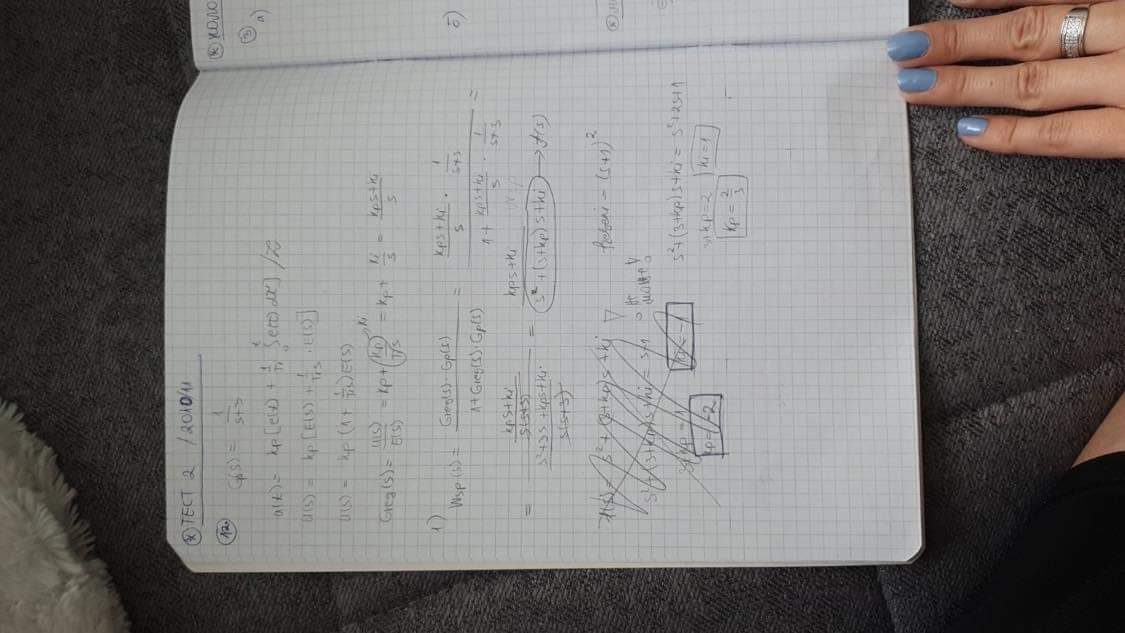 ТЕСТ 2 / 2010/11
12.
Gp(s) = 1/(s+3)
u(t) = kp [e(t) + 1/Ti ∫ e(τ) dτ] / L
U(s) = kp [E(s) + 1/(Ti s) · E(s)]
U(s) = kp (1 + 1/(Ti s)) E(s)
Greg(s) = U(s)/E(s) = kp + kp/(Ti s) = kp + ki/s = (kps+ki)/s
ki
1) Wsp(s) = Greg(s)·Gp(s) / (1+Greg(s)·Gp(s)) = ((kps+ki)/s · 1/(s+3)) / (1 + (kps+ki)/s · 1/(s+3)) =
= ((kps+ki)/(s(s+3))) / ((s²+3s+kps+ki)/(s(s+3))) = (kps+ki) / (s²+(3+kp)s+ki) → f(s)
f(s) = s²+(3+kp)s+ki
= (s+1)²
s²+(3+kp)s+ki = s+1
s²+(3+kp)s+ki = s²+2s+1
3+kp = 1
kp = -2
ki = 1
kp = 2
ki = 1
kp = 2/3
3
а)
б)